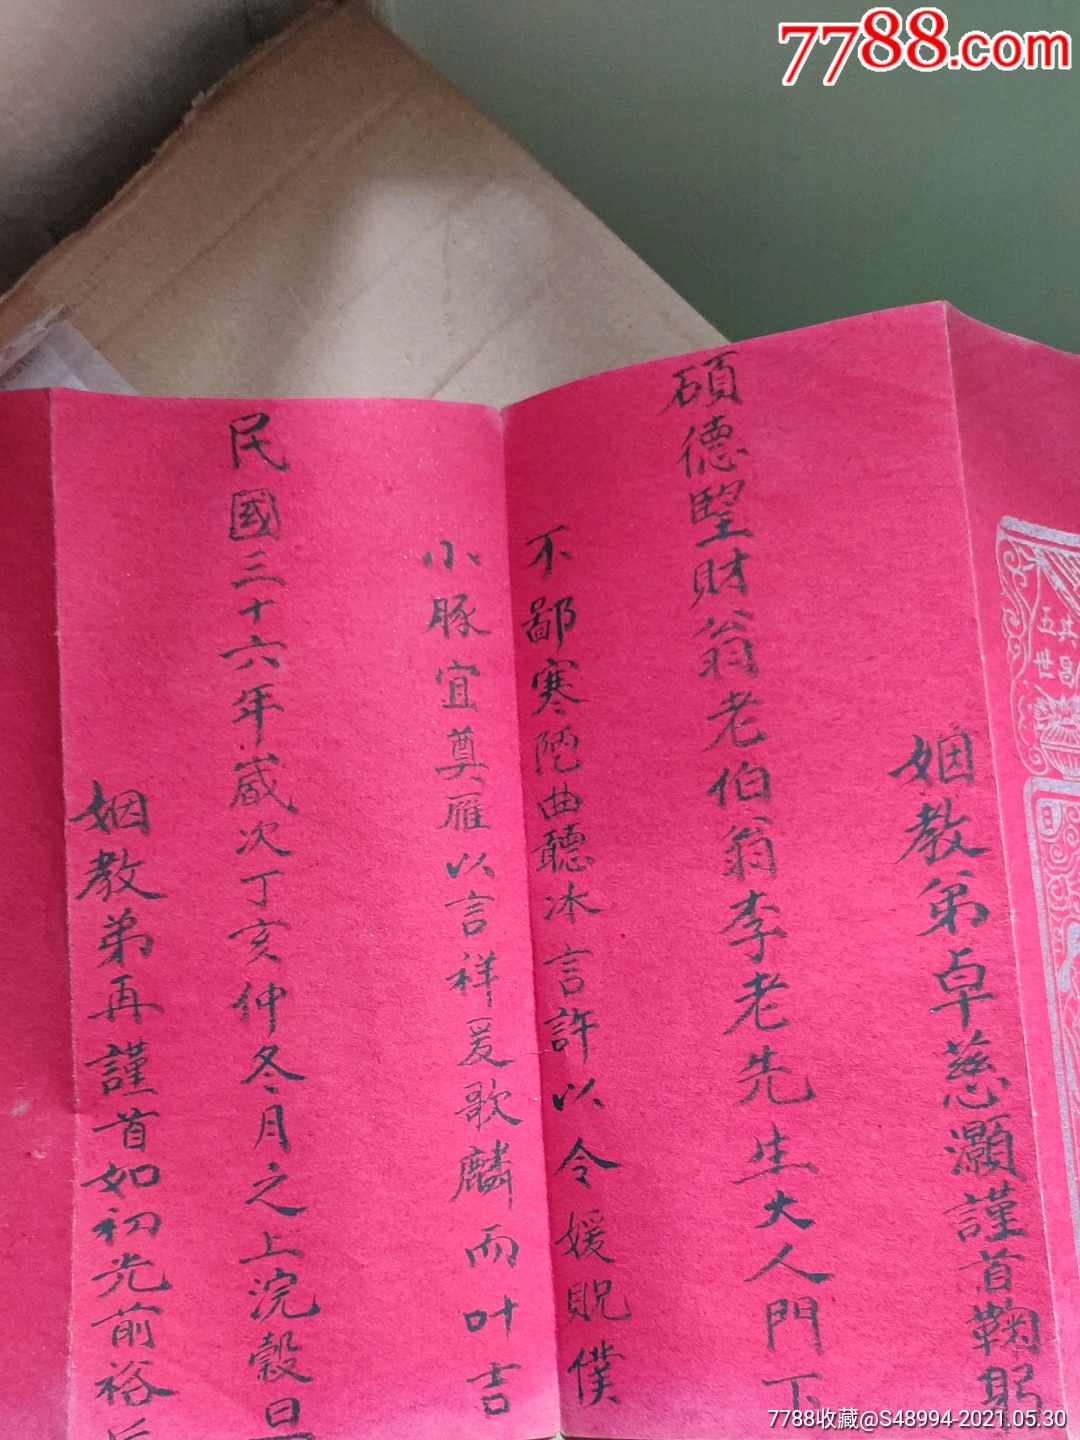 7788.com
其昌
五世
姻教弟卓慈灝謹首鞠躬
碩德堅財翁老伯翁李老先生大人門下
不鄙寒陋曲聽冰言許以令媛貺僕
小豚宜奠雁以言祥爰歌麟而叶吉
民國三十六年歲次丁亥仲冬月之上浣穀旦
姻教弟再謹首如初光前裕后
7788收藏@S48994-2021.05.30